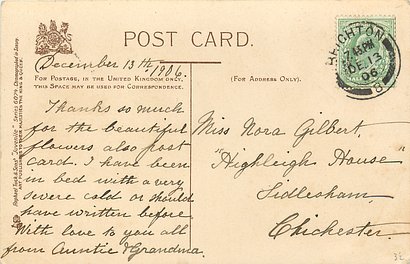 POST CARD.
December 13th
1906.
FOR POSTAGE, IN THE UNITED KINGDOM ONLY,
THIS SPACE MAY BE USED FOR CORRESPONDENCE.
(FOR ADDRESS ONLY).
Thanks so much
for the beautiful
flowers also post
card. I have been
in bed with a very
severe cold or should
have written before.
With love to you all
from Auntie & Grandma.
BRIGHTON
PM
DE 13
06
Miss Nora Gilbert,
"Highleigh House"
Sidlesham,
Chichester.
Raphael Tuck & Sons'
ART PUBLISHERS TO THEIR MAJESTIES THE KING & QUEEN.